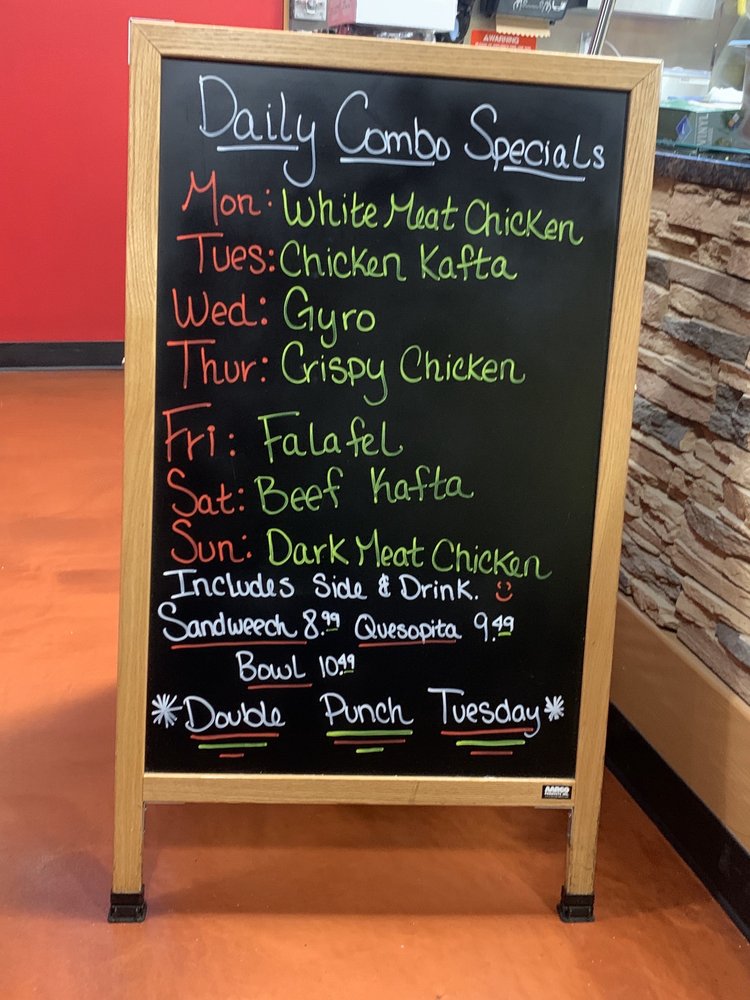 WARNING
Daily Combo Specials
Mon: White Meat Chicken
Tues: Chicken Kafta
Wed: Gyro
Thur: Crispy Chicken
Fri: Falafel
Sat: Beef Kafta
Sun: Dark Meat Chicken
Includes Side & Drink.
Sandweech 8.99 Quesopita 9.49
Bowl 10.49
*Double Punch Tuesday*
AARCO
VINYL